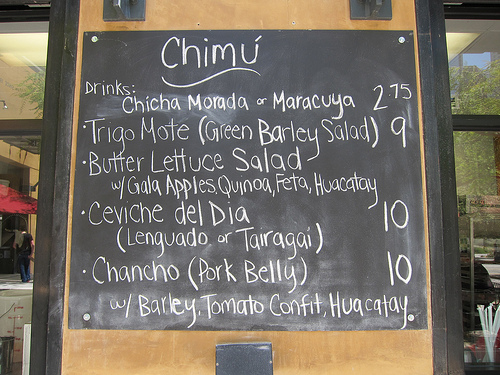 Chimú
Drinks:
Chicha Morada or Maracuya 2 75
· Trigo Mote (Green Barley Salad) 9
· Butter Lettuce Salad
w/ Gala Apples, Quinoa, Feta, Huacatay
· Ceviche del Dia 10
(Lenguado or Tairagai)
· Chancho (Pork Belly) 10
w/ Barley, Tomato Confit, Huacatay